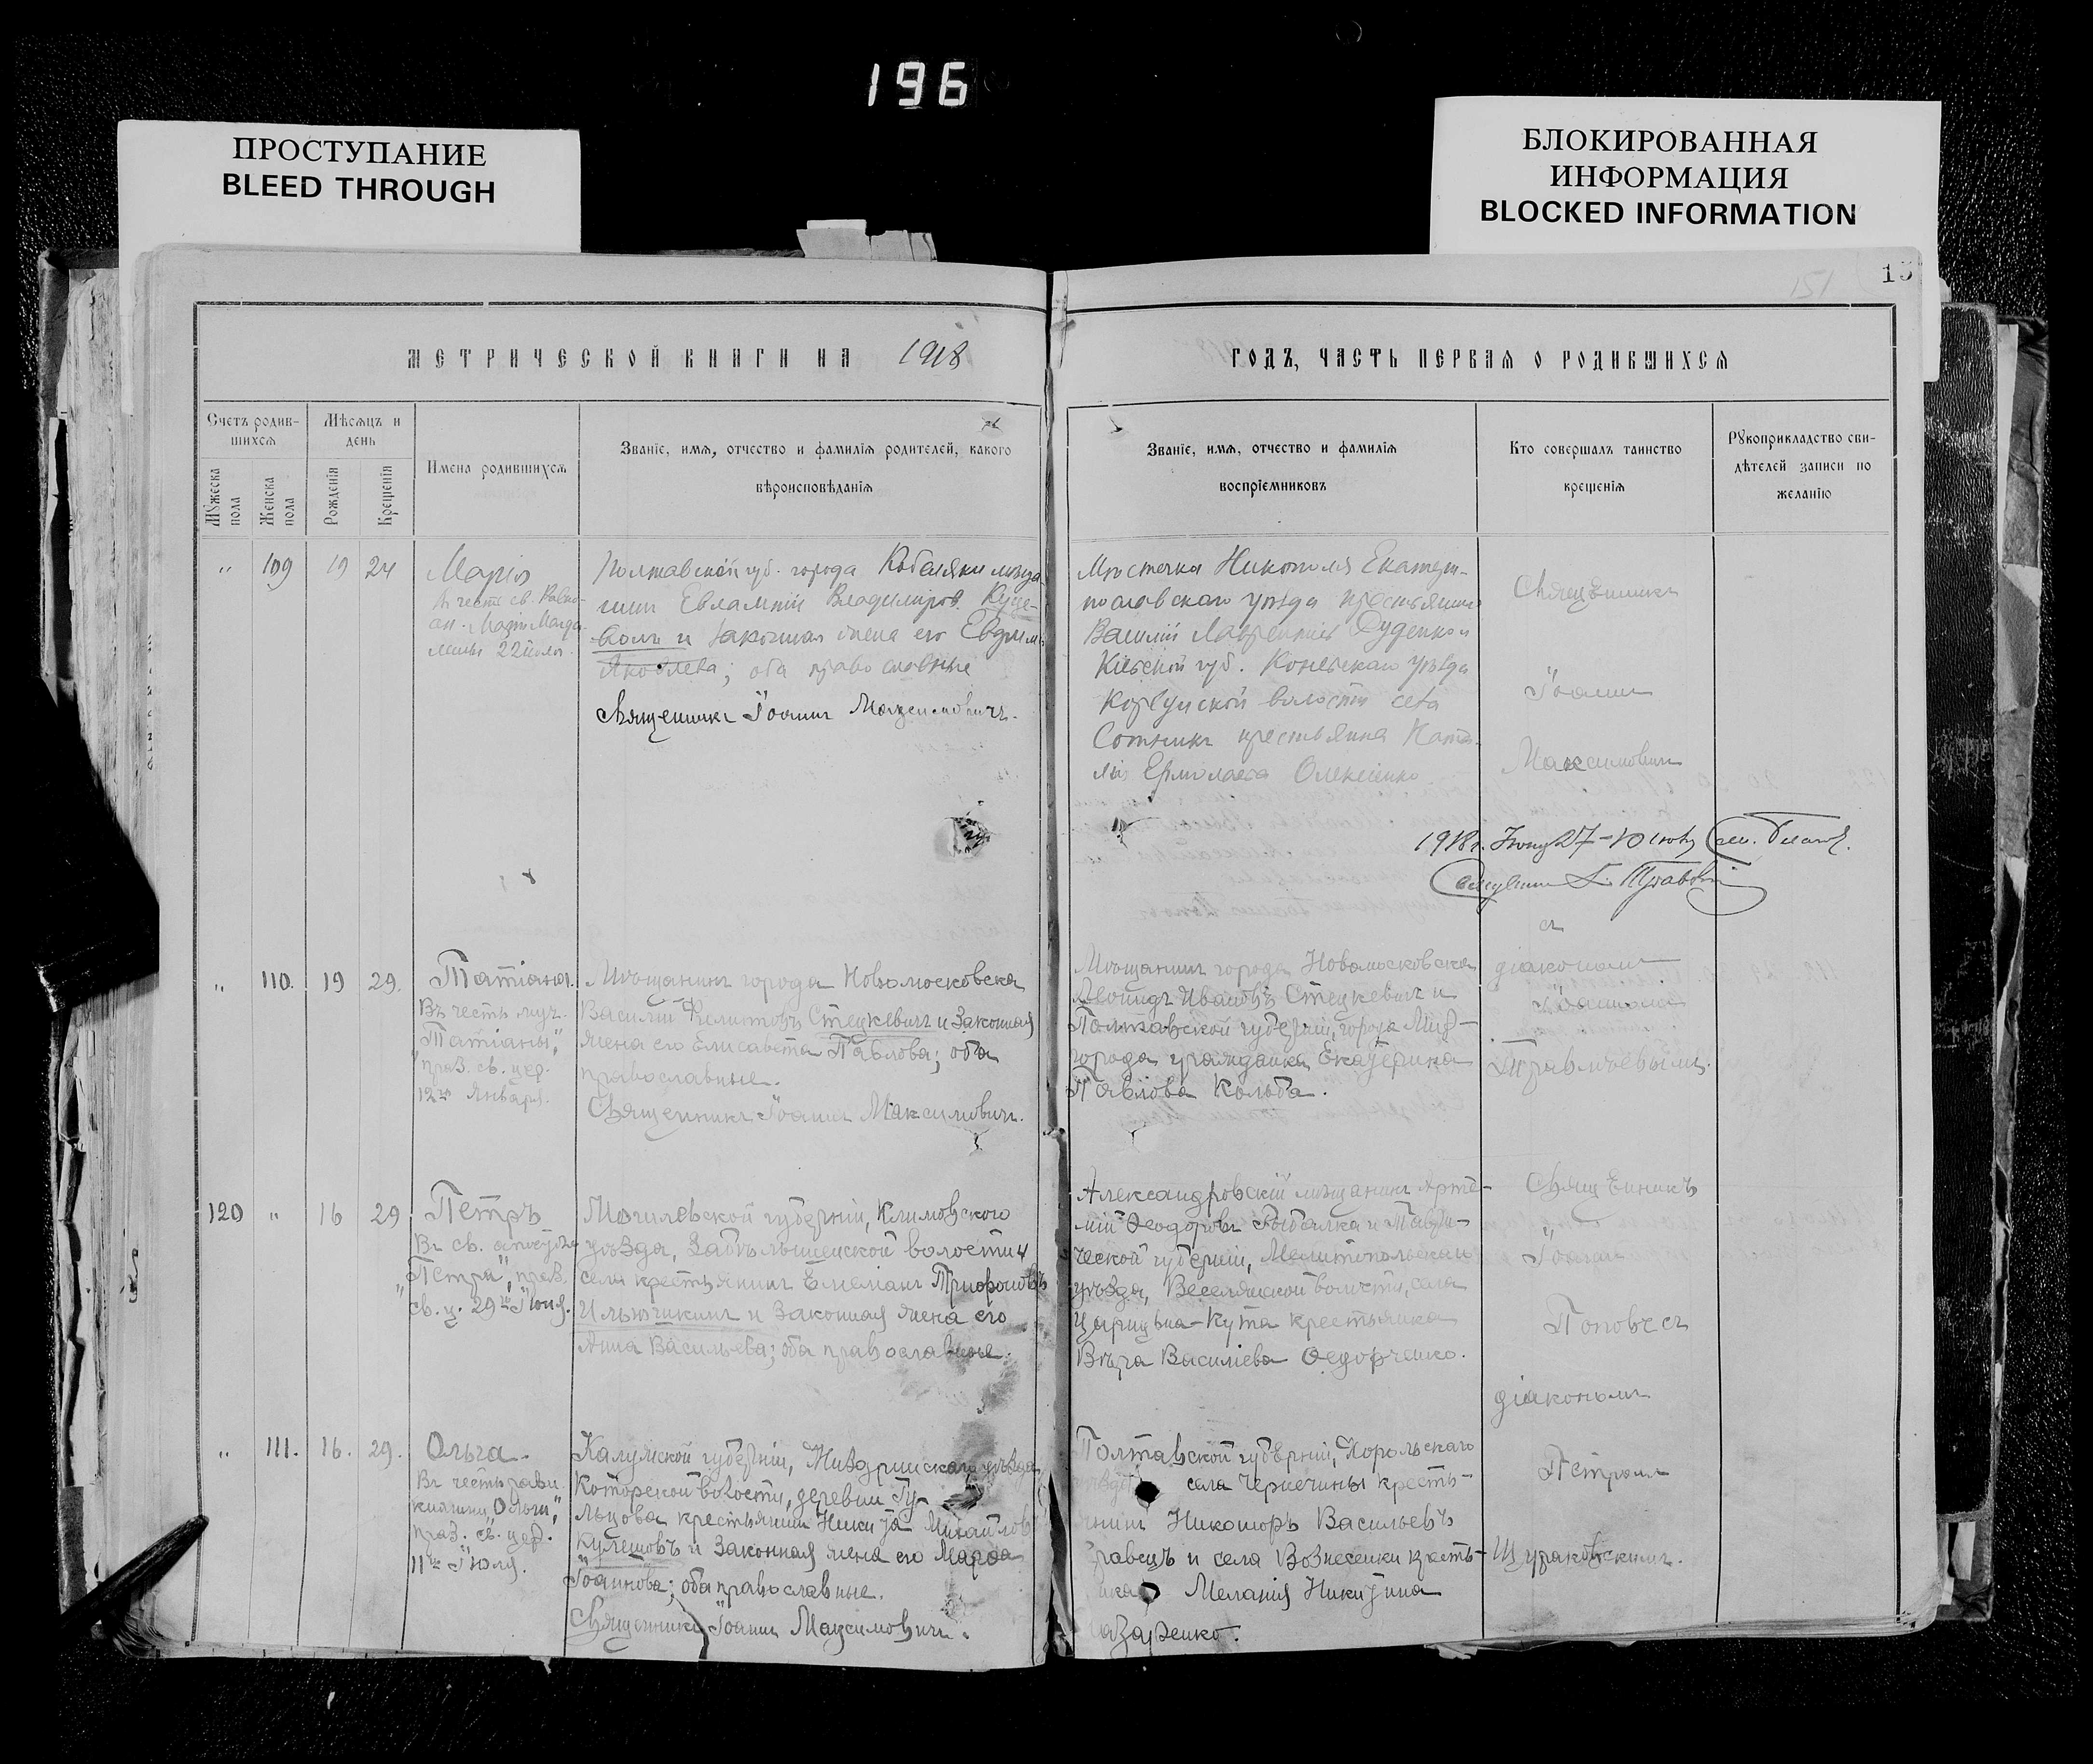 196
ПРОСТУПАНИЕ
BLEED THROUGH
БЛОКИРОВАННАЯ
ИНФОРМАЦИЯ
BLOCKED INFORMATION
151
15
МЕТРИЧЕСКОЙ КНИГИ НА 1918
ГОДЪ, ЧАСТЬ ПЕРВАЯ О РОДИВШИХСЯ
Счетъ родив-
шихся
Мѣсяцъ и
день
Мужеска
пола
Женска
пола
Рожденія
Крещенія
Имена родившихся
Званіе, имя, отчество и фамилія родителей, какого
вѣроисповѣданія
Званіе, имя, отчество и фамилія
воспріемниковъ
Кто совершалъ таинство
крещенія
Рукоприкладство сви-
дѣтелей записи по
желанію
„ 109 19 24
Марія
Въ честь св. Равно-
ап. Маріи Магда-
лины 22 іюля.
Полтавской губ. города Кобеляки мѣща-
нинъ Евлампій Владиміров.
и законная жена его
Яковлева; оба православные
Священникъ Іоаннъ Максимовичъ.
Мѣстечка Никополя Екатери-
нославскаго уѣзда крестьянинъ
Василій Лаврентіев Руденко и
Кіевской губ. Каневскаго уѣзда
Корсунской волости села
Сотники крестьянка Ната-
лія Ермолаева Олексіенко
Священникъ
Іоаннъ
Максимовичъ
1918 г.
съ
діакономъ
Іоанномъ
„ 110. 19 29.
Татіана.
Въ честь муч.
„Татіаны",
праз. св. цер.
12го Января.
Мѣщанинъ города Новомосковска
Василій Филиповъ Стецкевичъ и законная
жена его Елисавета Павлова; оба
православные.
Священникъ Іоаннъ Максимовичъ.
Мѣщанинъ города Новомосковска
Леонидъ Ивановъ Стецкевичъ и
Полтавской губерніи, города Мир-
города гражданка Екатерина
Павлова Кольба.
120 „ 16 29
Петръ
Въ св. апостола
„Петра", праз.
св. ц. 29го Іюня.
Могилевской губерніи, Климовскаго
уѣзда, волости и
села крестьянинъ Емеліанъ
и законная жена его
Анна Васильева; оба православные.
Александровскій мѣщанинъ Арте-
мій Ѳеодоровъ Рыбалка и Таври-
ческой губерніи, Мелитопольскаго
уѣзда, Веселянской волости, села
Царицына-Кута крестьянка
Вѣра Василіева Ѳедорченко.
Священникъ
Іоаннъ
Поповъ съ
діакономъ
Петромъ
Щураковскимъ.
„ 111. 16. 29.
Ольга.
Въ честь равн.
княгини „Ольги",
праз. св. цер.
11го Іюля.
Калужской губерніи, Жиздринскаго уѣзда
Которской волости, деревни Гу-
льцова крестьянинъ Никита Михайловъ
Кулешовъ и законная жена его Марѳа
Іоаннова; оба православные.
Священникъ Іоаннъ Максимовичъ.
Полтавской губерніи, Хорольскаго
села Чернечины кресть-
янинъ Никаноръ Васильевъ
и села Вознесенки кресть-
Меланія Никитина